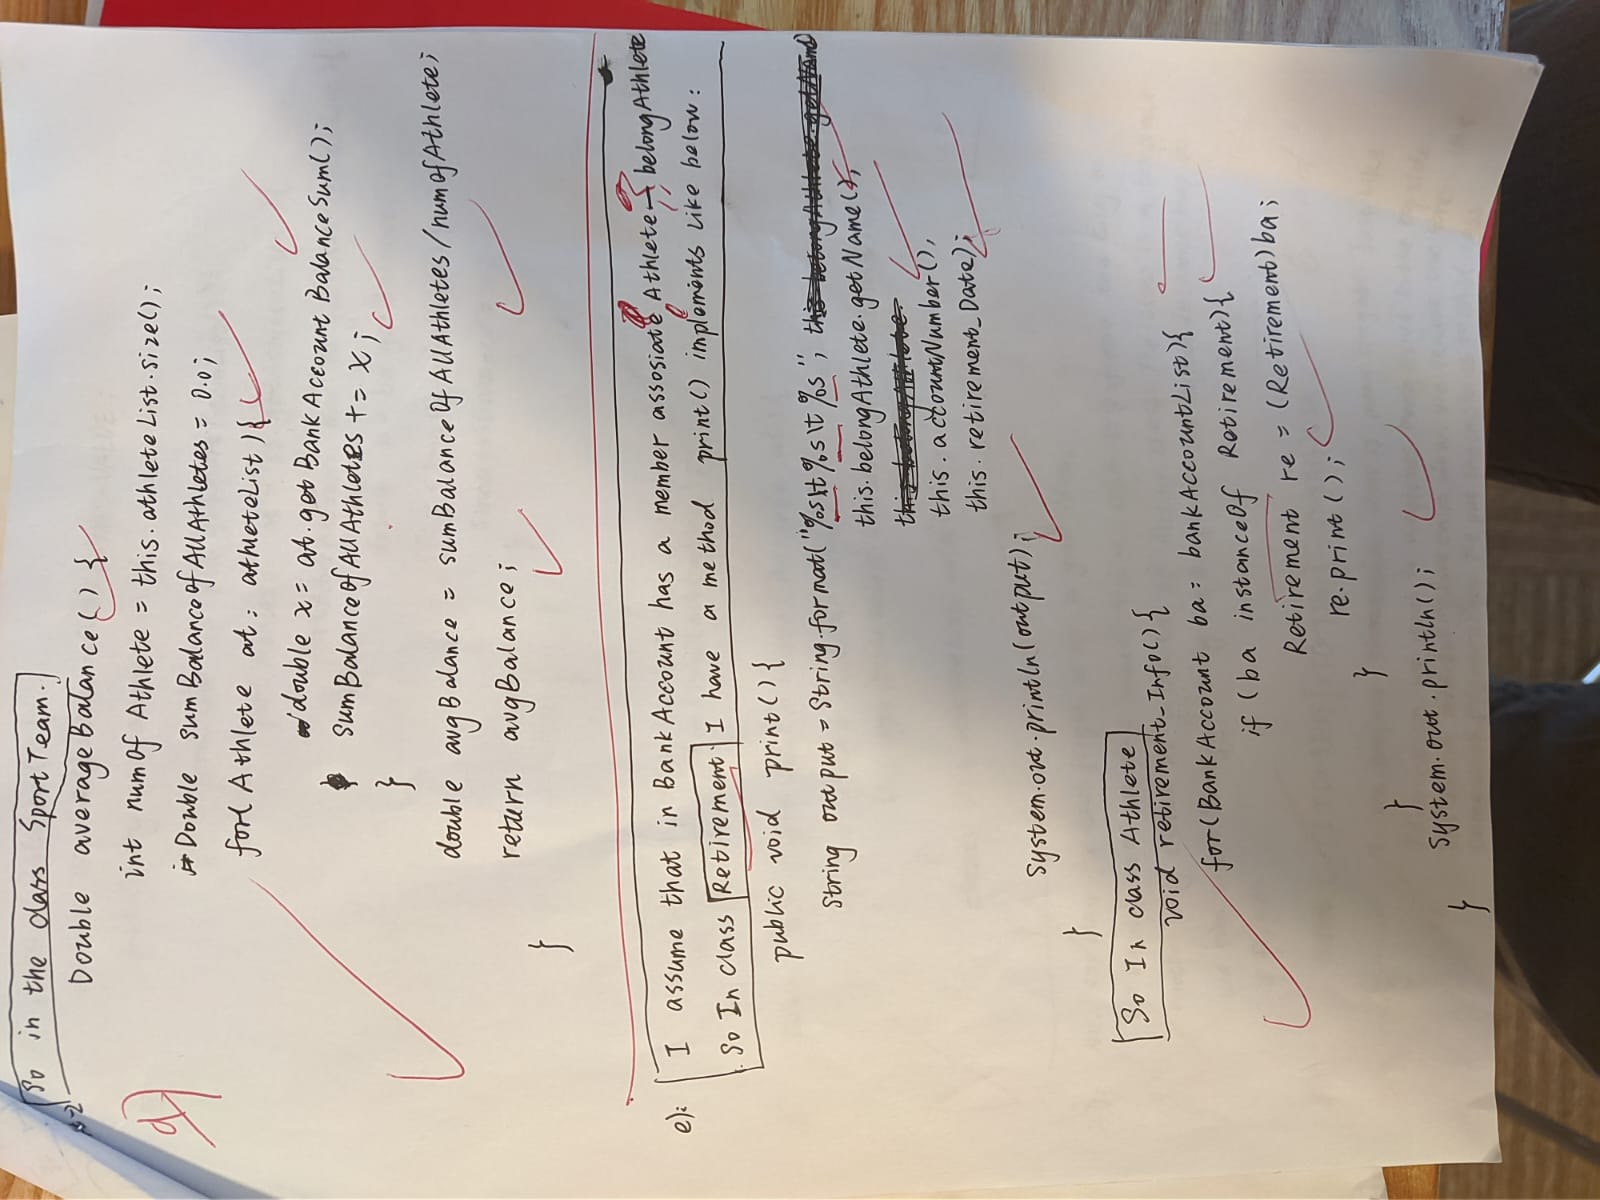 So in the class Sport Team.
Double averageBalance() {
int numOfAthlete = this.athleteList.size();
Double sumBalanceOfAllAthletes = 0.0;
for(Athlete at: athleteList){
double x = at.getBankAccountBalanceSum();
sumBalanceOfAllAthletes += x;
}
double avgBalance = sumBalanceOfAllAthletes/numofAthlete;
return avgBalance;
}
d)
e):
I assume that in BankAccount has a member assosiate Athlete belongAthlete
So In class Retirement. I have a method print() implements like below:
public void print(){
String output = String.format("%s\t%s\t%s",
this.belongAthlete.getName(),
this.accountNumber(),
this.retirement_Date);
System.out.println(output);
}
So In class Athlete
void retirement_Info(){
for(BankAccount ba: bankAccountList){
if (ba instanceOf Retirement){
Retirement re = (Retirement)ba;
re.print();
}
}
System.out.println();
}